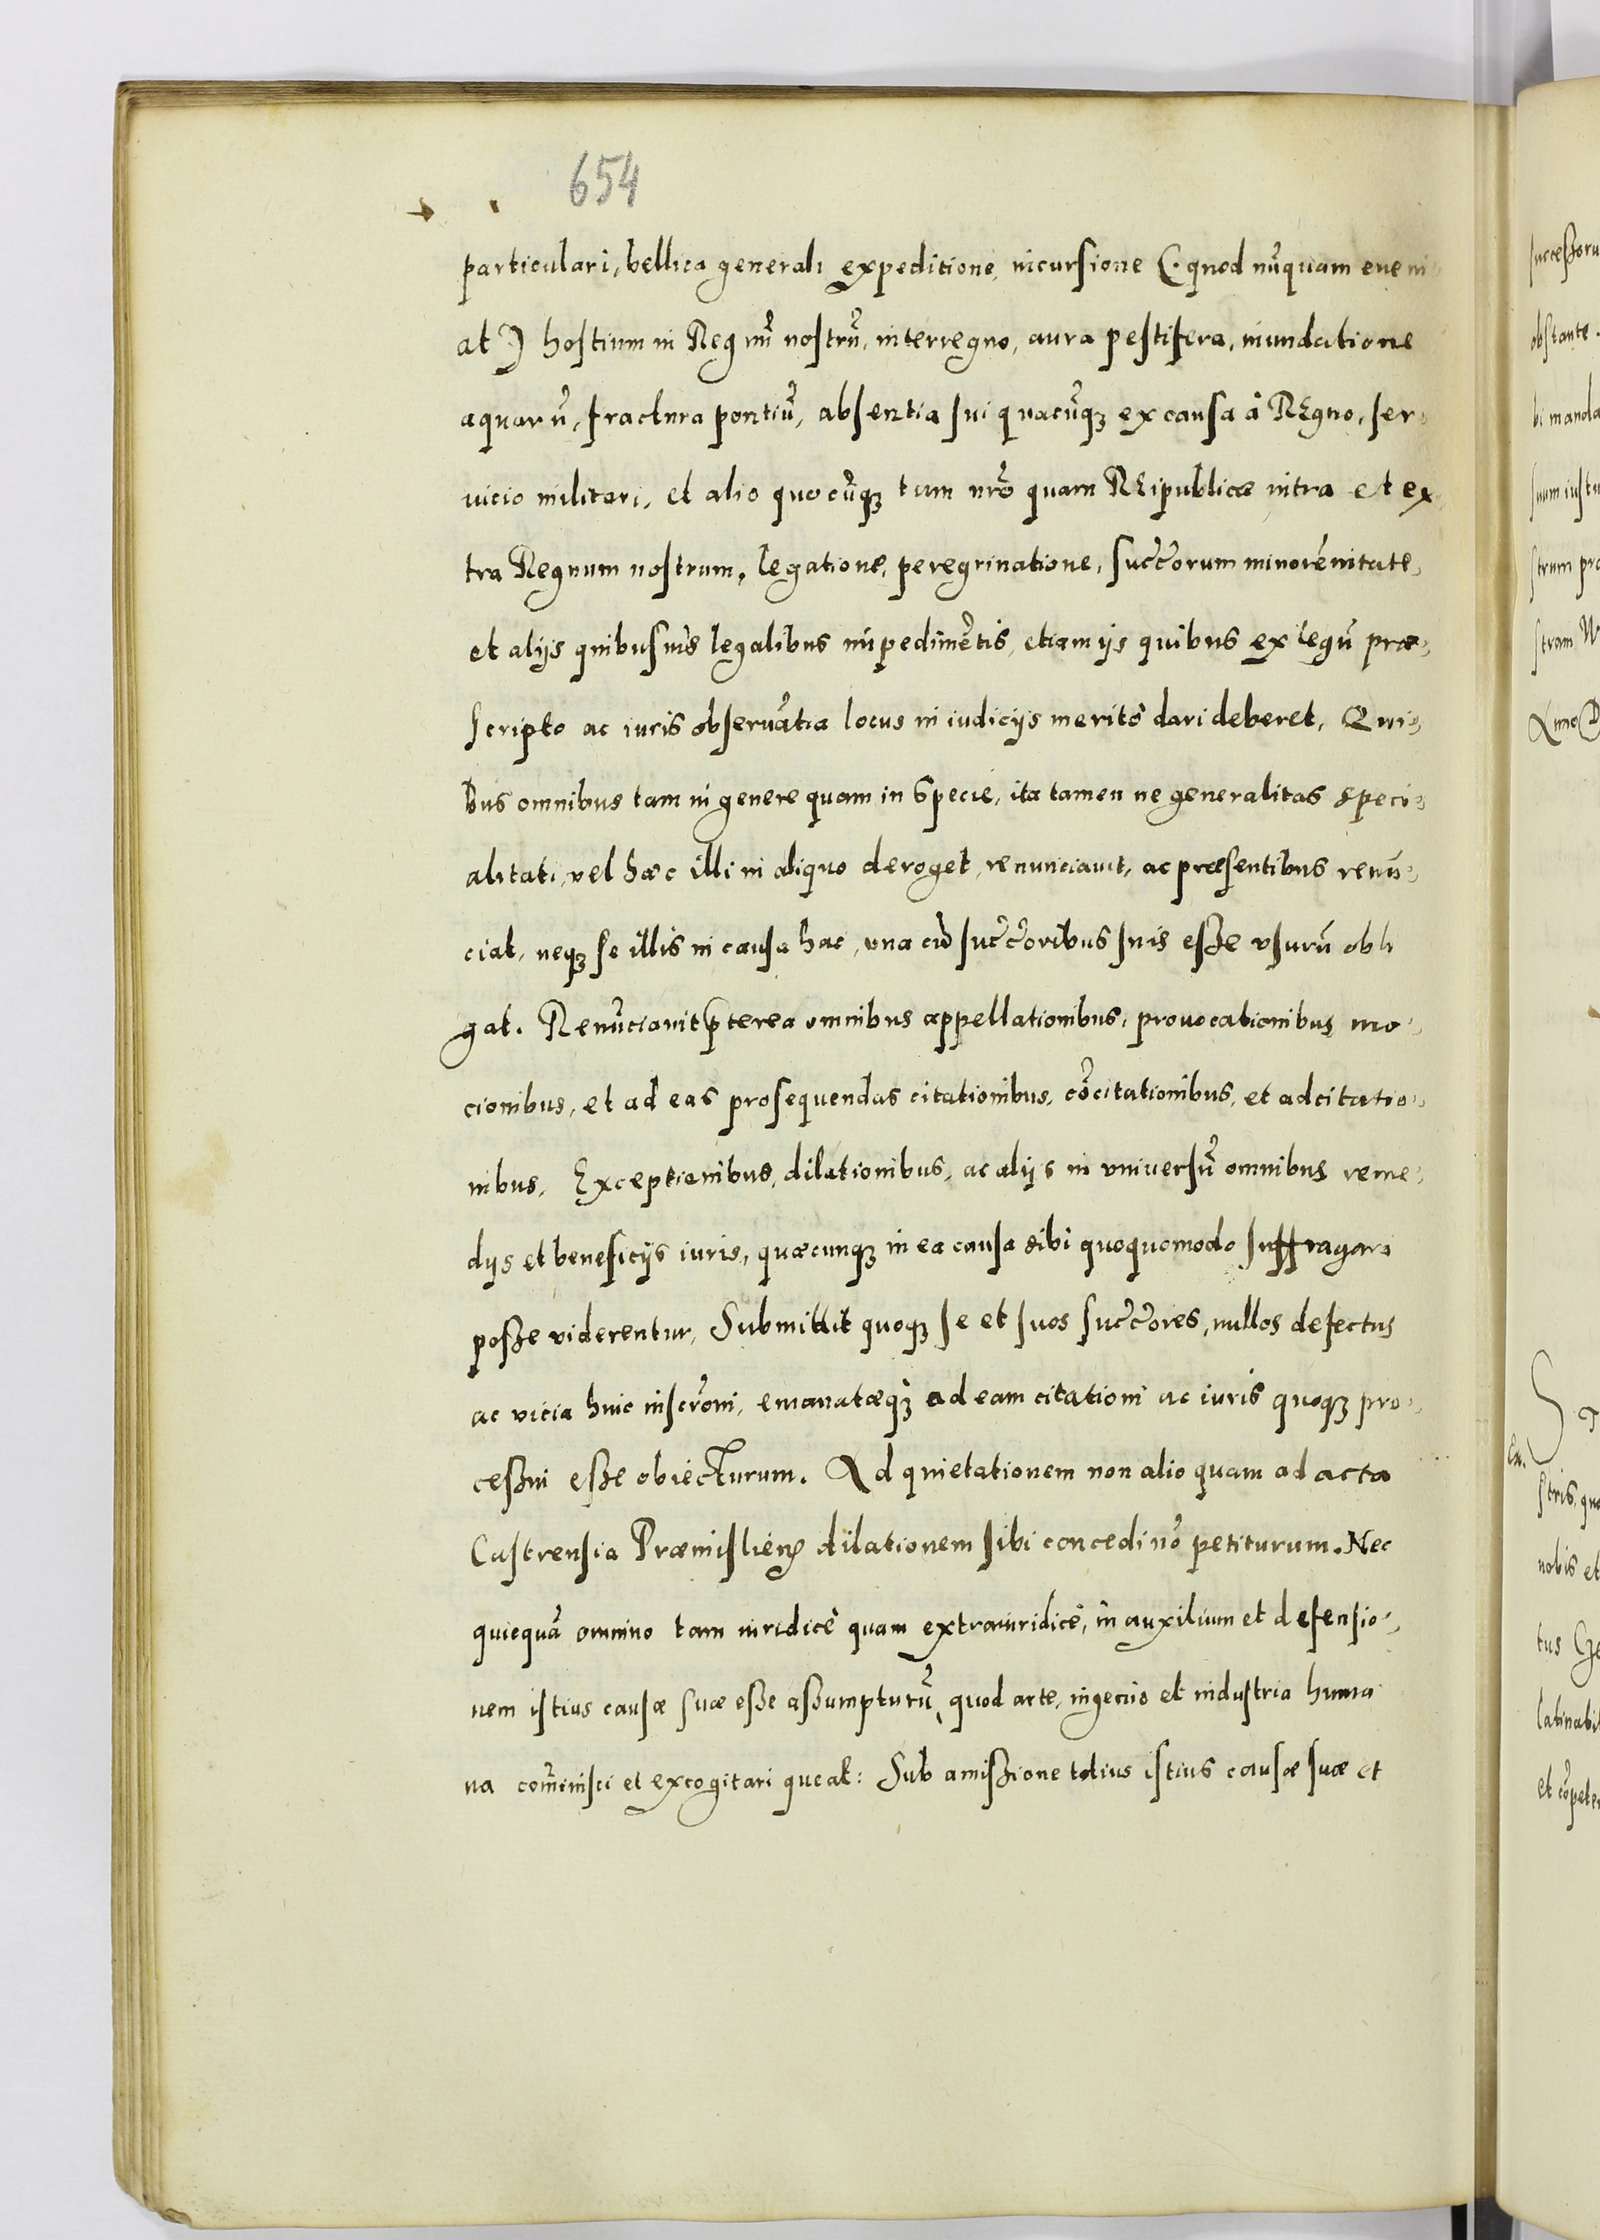 654
particulari, bellica generali expeditione, incursione (. quod nũquam eueni
at .) hostium in Regnũ nostrũ, interregno, aura pestifera, inundatione
aquarũ, fractura pontiũ, absentia sui quacũqʒ ex causa à REgno, ser-
uicio militari, et alio quocũqʒ tam nr̃o quam REipublicæ intra et ex-
tra Regnum nostrum, legatione, peregrinatione, succ̃orum minorẽnitate,
et alijs quibusuis legalibus impedimẽtis, etiam ijs quibus ex legũ præ-
scripto ac iuris obseruãtia locus in iudicijs meritò dari deberet, Qui-
bus omnibus tam in genere quam in specie, ita tamen ne generalitas speci-
alitati, vel hæc illi in aliquo deroget, renunciauit, ac præsentibus renũ-
ciat, neqʒ se illis in causa hac, vna cũ succ̃oribus suis esse vsurũ obli
gat. Renũciauit p̱terea omnibus appellationibus, prouocationibus mo-
cionibus, et ad eas prosequendas citationibus, cõcitationibus, et adcitatio-
nibus, Exceptionibus, dilationibus, ac alijs in vniuersũ omnibus reme-
dijs et beneficijs iuris, quæcunqʒ in ea causa sibi quoquomodo suffragari
posse viderentur, Submittit quoqʒ se et suos succ̃ores, nullos defectus
ac vicia huic inscr̃oni, emanatæqʒ ad eam citationi ac iuris quoqʒ pro-
cessui esse obiecturum. Ad quietationem non alio quam ad acta
Castrensia Præmislieñ dilationem sibi concedi nõ petiturum. Nec
quicquã omnino tam iuridicè quam extraiuridicè, in auxilium et defensio-
nem istius causæ suæ esse assumpturũ, quod arte, ingenio et industria huma
na com̃inisci et excogitari queat: Sub amissione totius istius causæ suæ et
successoru
obstante.
bi manda
suum iustu
strum pro
stram
Anno D
En.
stris, qu
nobis et
tus
latinabil
et cõpeten